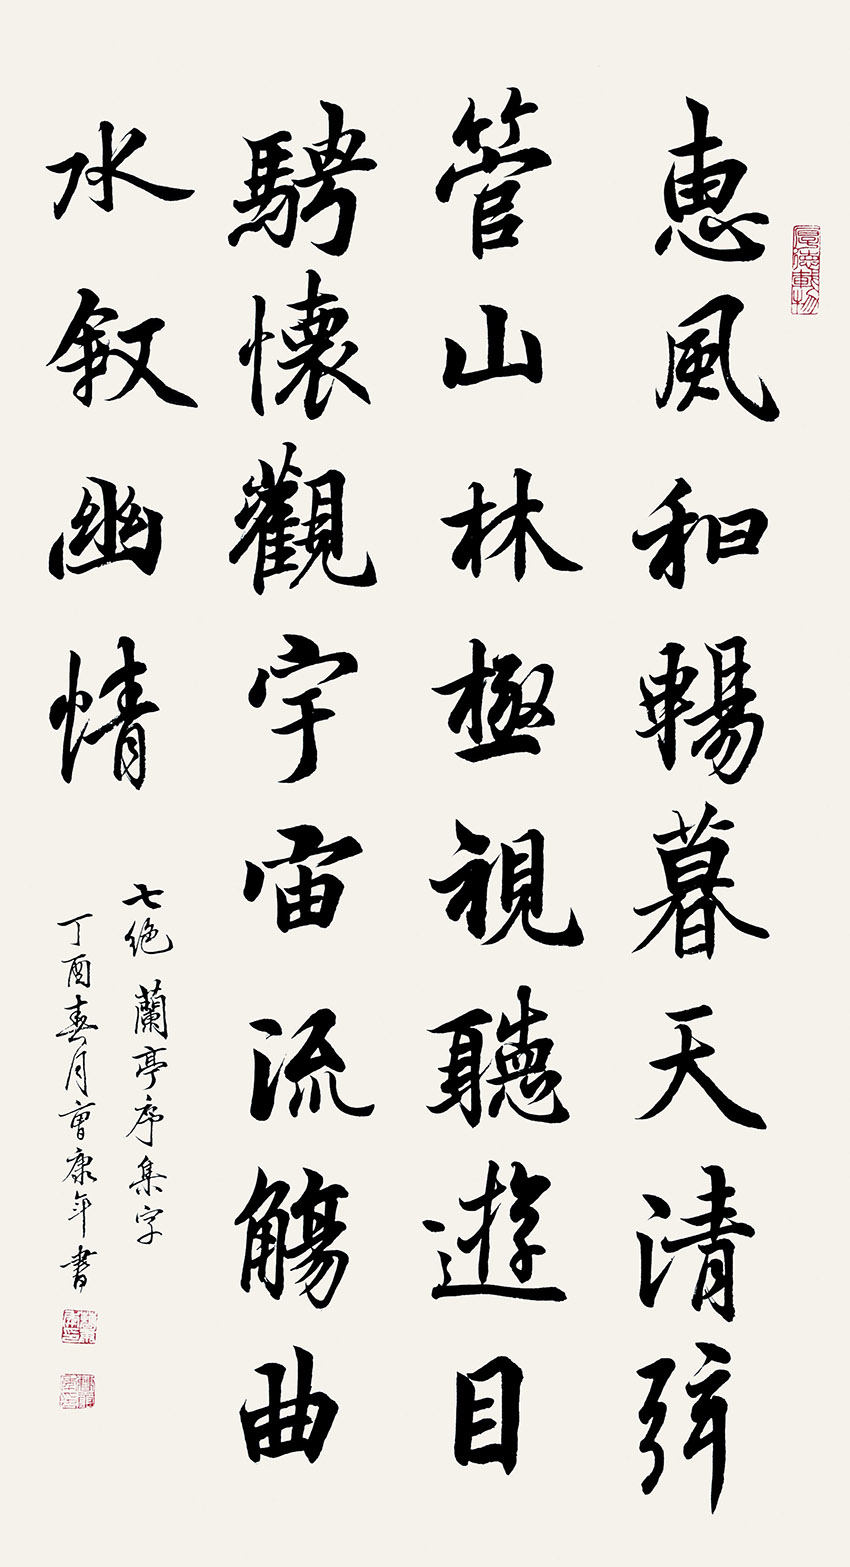 惠風和暢暮天清弦
管山林極視聽遊目
騁懷觀宇宙流觴曲
水敘幽情
七绝 蘭亭序集字
丁酉春月曾康年書
厚德載物